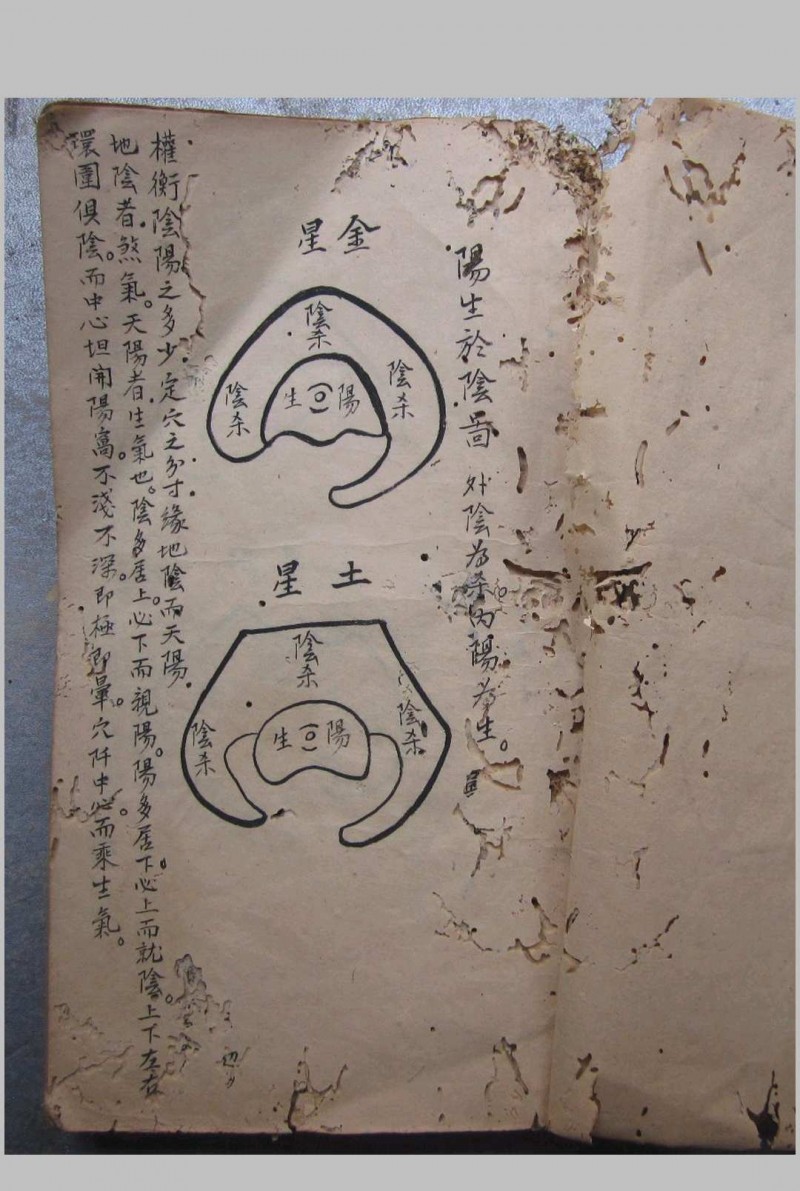 陽生於陰啚 外陰為杀内陽為生。
金星
陰杀
陰杀
陽生
陰杀
土星
陰杀
陰杀
陽生
陰杀
權衡陰陽之多少定穴之分寸緣地陰而天陽
地陰者煞氣。天陽者生氣也。陰多居上。必下而親陽。陽多居下。必上而就陰。上下左右
環圍俱陰。而中心坦開陽窩。不淺不深。即極即暈。穴阡中心。而乘生氣。